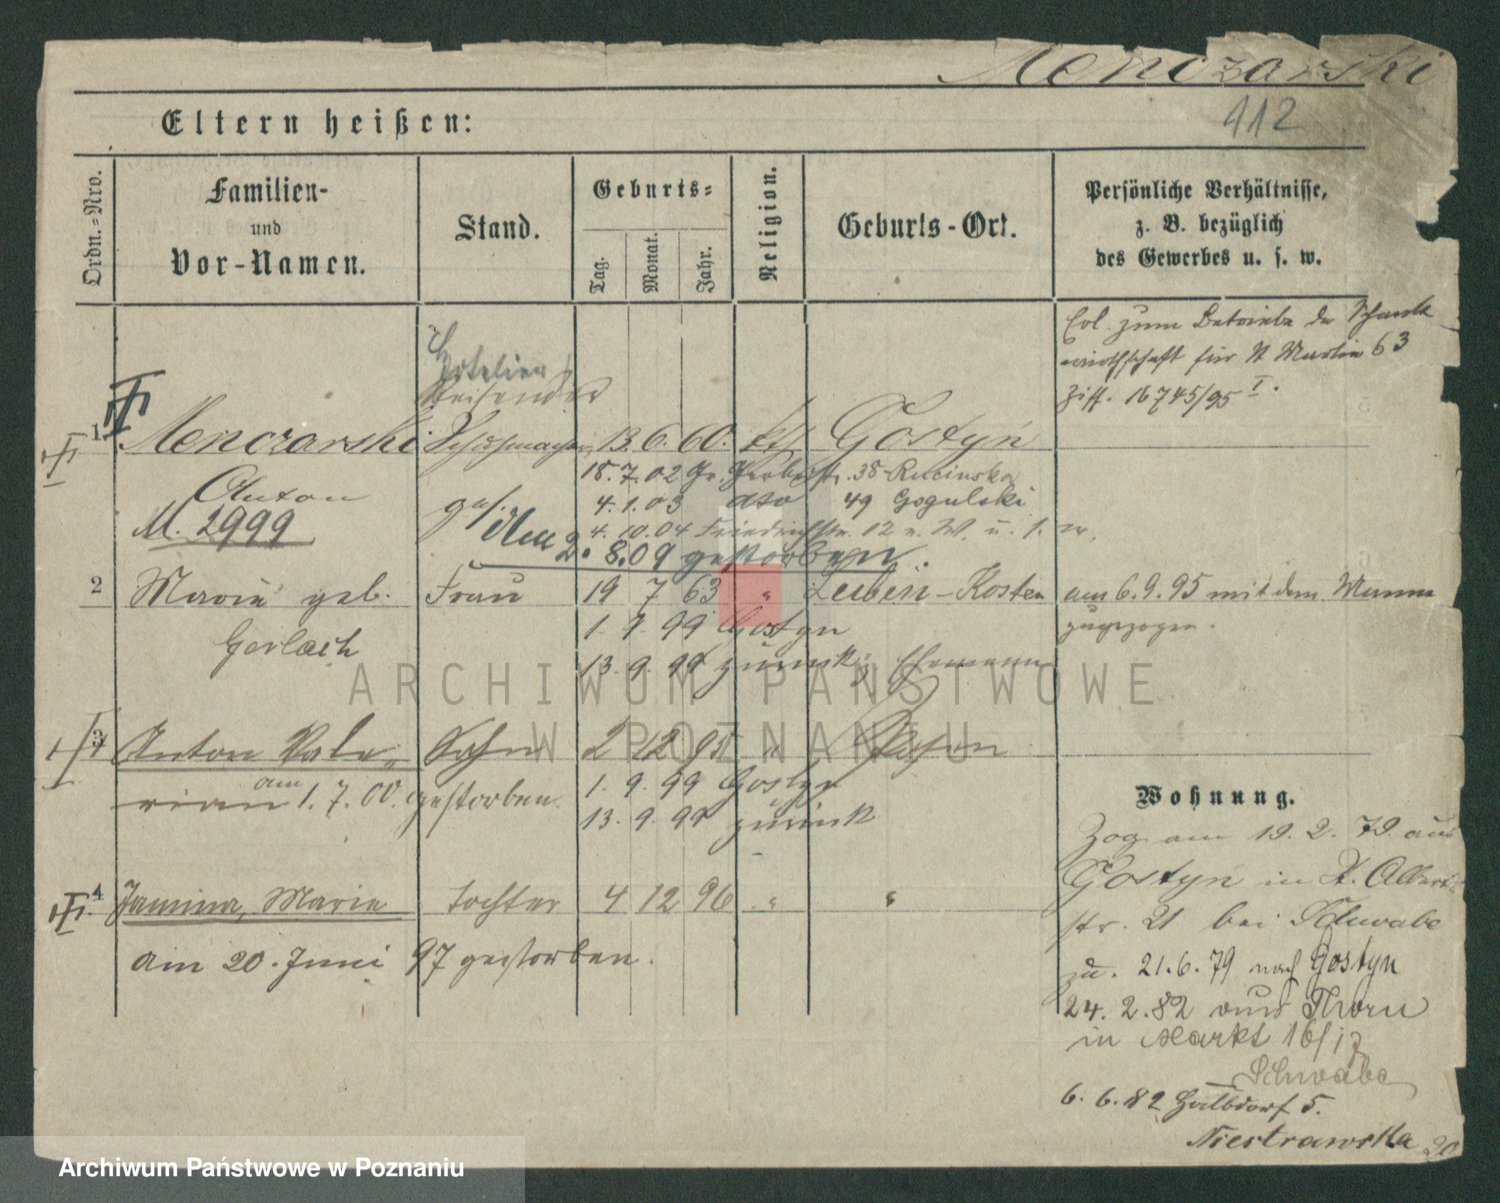 Menczarski
412
Eltern heißen:
Ordn.-Nro.
Familien-
und
Vor-Namen.
Stand.
Geburts-
Tag.
Monat.
Jahr.
Religion.
Geburts-Ort.
Persönliche Verhältnisse,
z. B. bezüglich
des Gewerbes u. s. w.
zum Betriebe der Schank
wirthschaft für St Martin 63
Ziff. 16745/95 I.
Reisender
1 Menczarski Schuhmacher 13. 6. 60. kth Gostyń
Anton
18.7.02 Gr. Gerberstr. 38 Rucinska
4.1.03 dto 49 Gogulski
M. 2999
4.10.04 Friedrichstr. 12 n. W. u. s. w.
den 2. 8.09 gestorben.
2 Marie geb. Frau 19 7 63 " Kosten am 6.9.95 mit dem Manne
zugezogen.
Gerlach
1. 9. 99 Gostyn
13. 9. 99 zurück Ehemann
3 Anton Vale- Sohn 2 12 91 " Posen
rian am 1. 7. 00. gestorben.
1. 9. 99 Gostyn
13. 9. 99 zurück
4 Janina, Marie Tochter 4 12 96 " "
am 20. Juni 97 gestorben.
Wohnung.
Zog am 19. 2. 79. aus
Gostyń in St. Adalbert-
str. 21 bei Schwabe
zu. 21.6.79 nach Gostyn
24. 2. 82 aus Thorn
in Markt 16/17
Schwabe
6. 6. 82 Halbdorf 5.
Niestrawska
ARCHIWUM PAŃSTWOWE
W POZNANIU
Archiwum Państwowe w Poznaniu